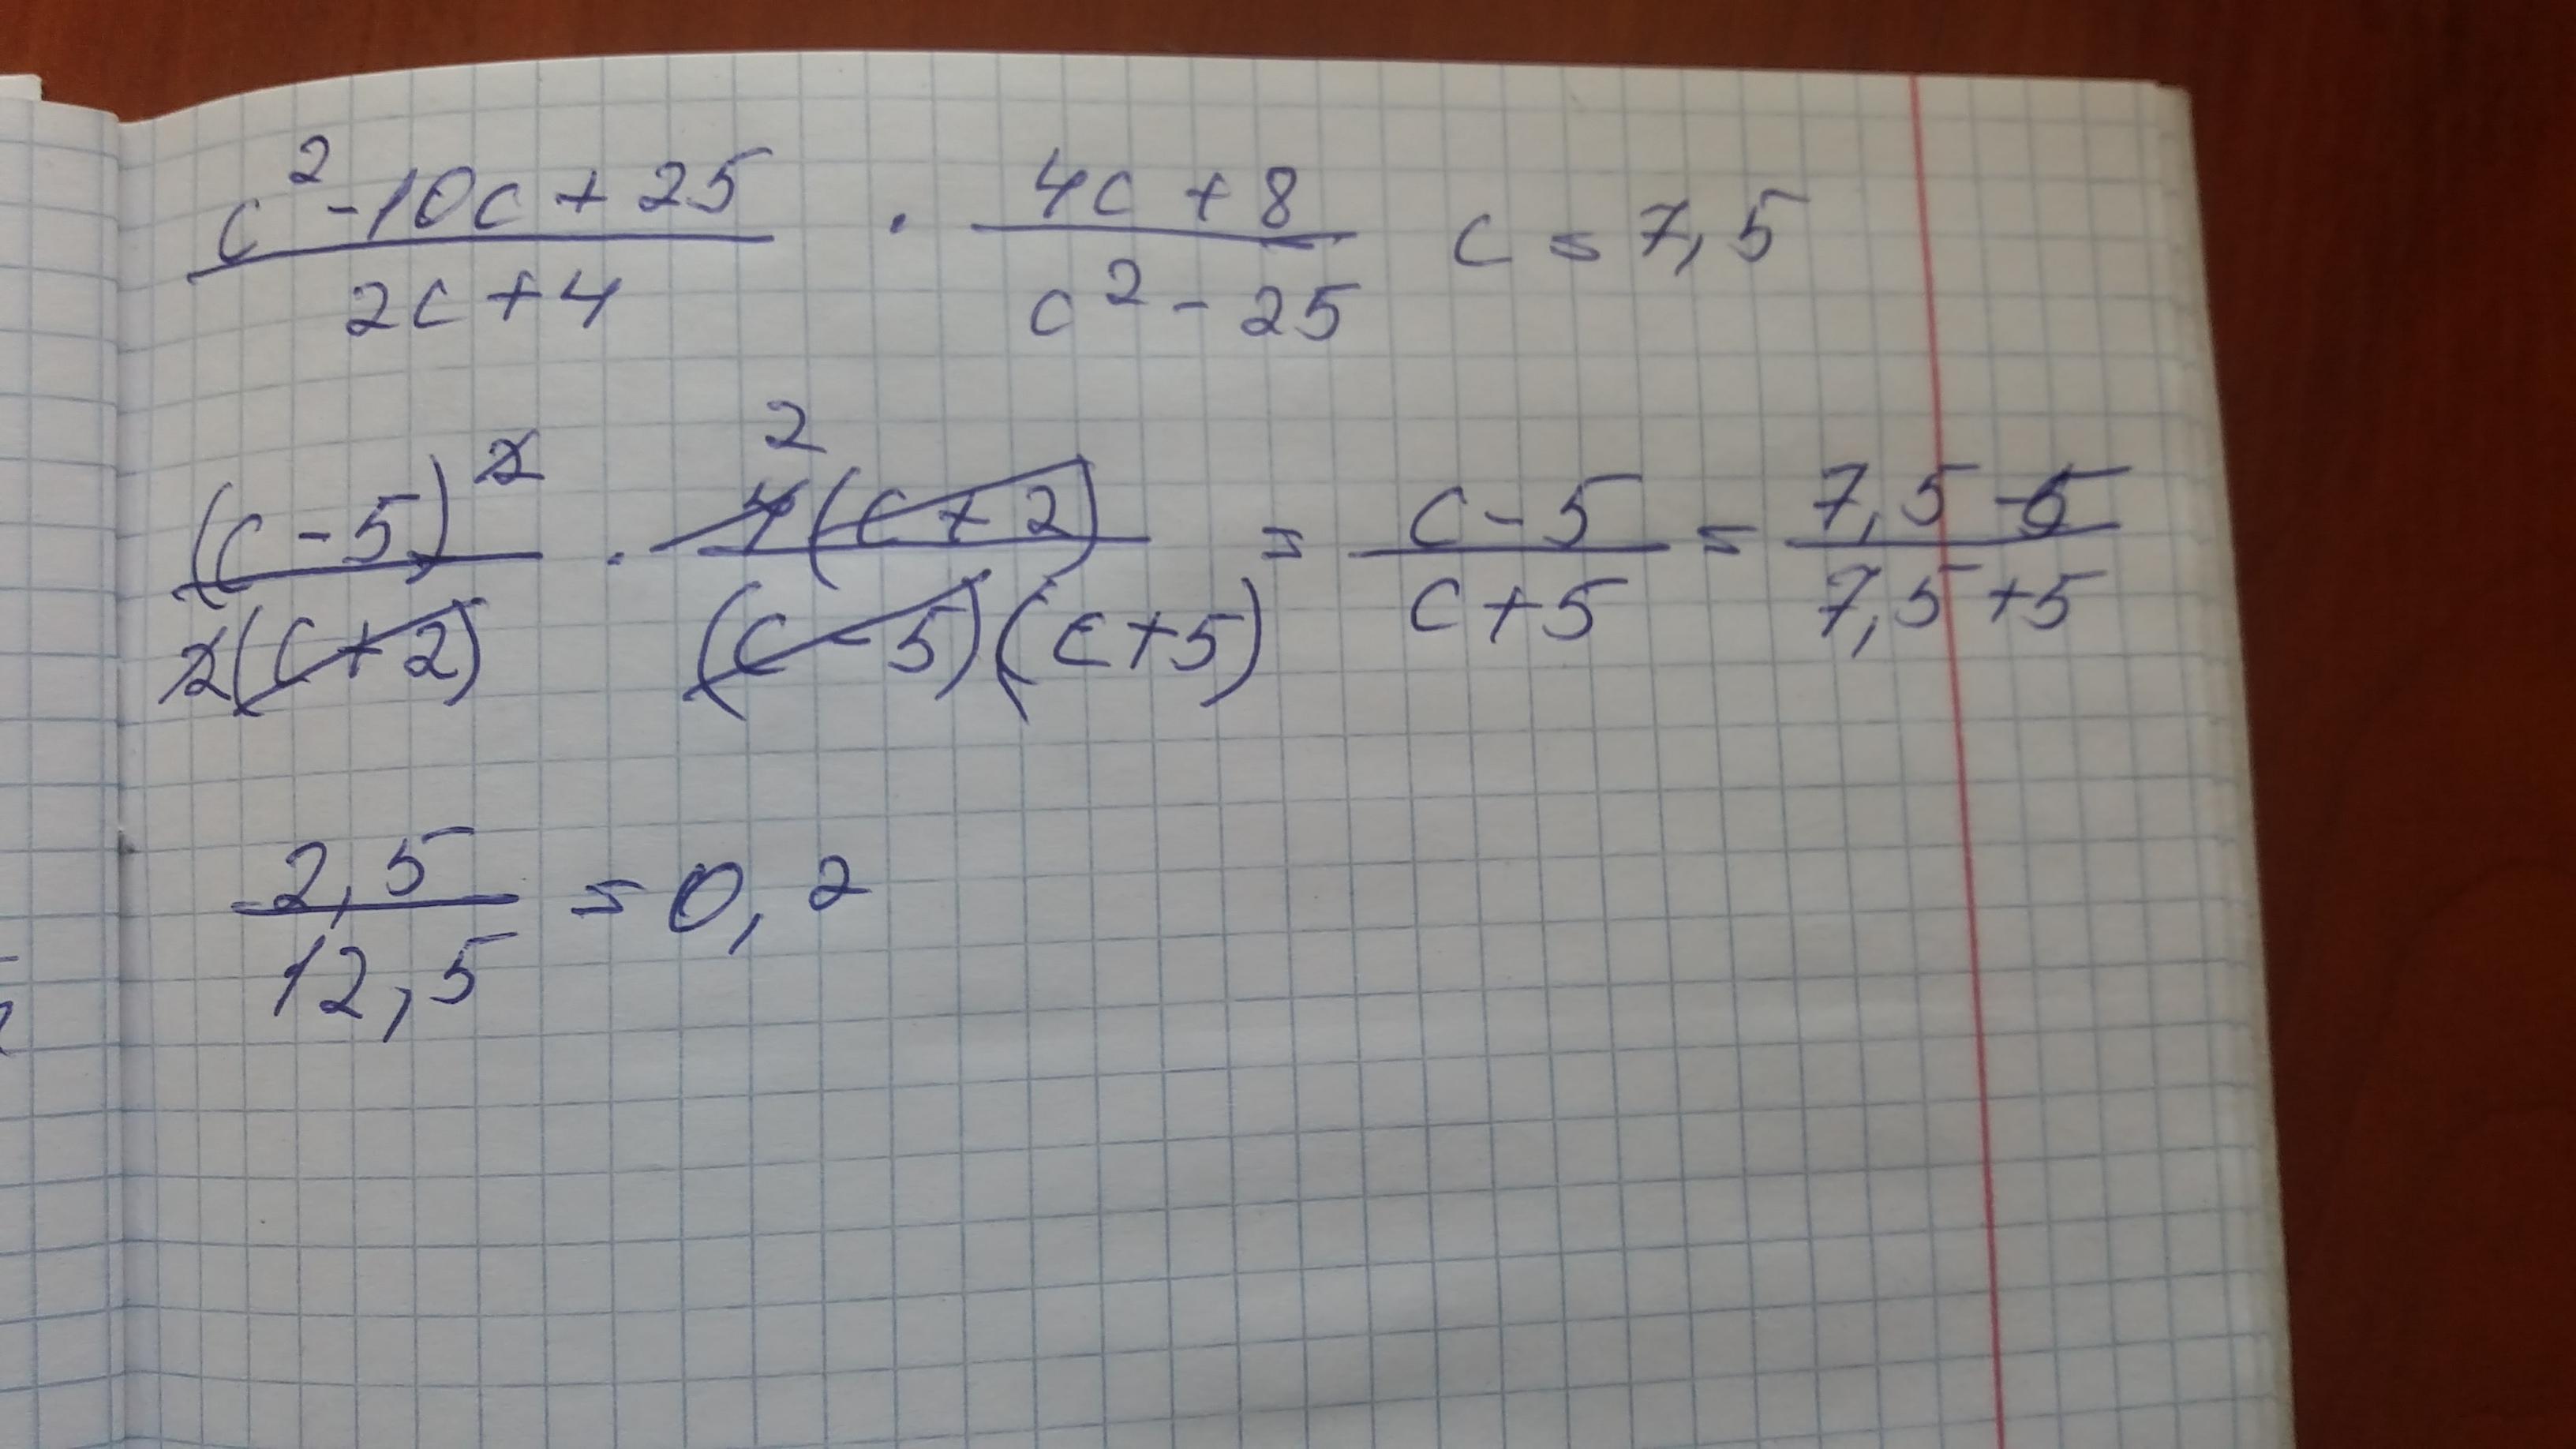 (c² - 10c + 25)/(2c + 4) · (4c + 8)/(c² - 25) c = 7,5
(c - 5)²/(2(c + 2)) · 2 4(c + 2)/((c - 5)(c + 5)) = (c - 5)/(c + 5) = (7,5 - 5)/(7,5 + 5)
2,5/12,5 = 0,2